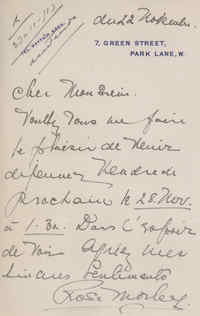 du 22 Novembre
7, GREEN STREET,
PARK LANE, W.
Cher Monsieur
Voulez vous me faire
le plaisir de venir
déjeuner Vendredi
prochain le 28 Nov.
à 1.30. Dans l'espoir
de vous Agréez mes
sincères sentiments